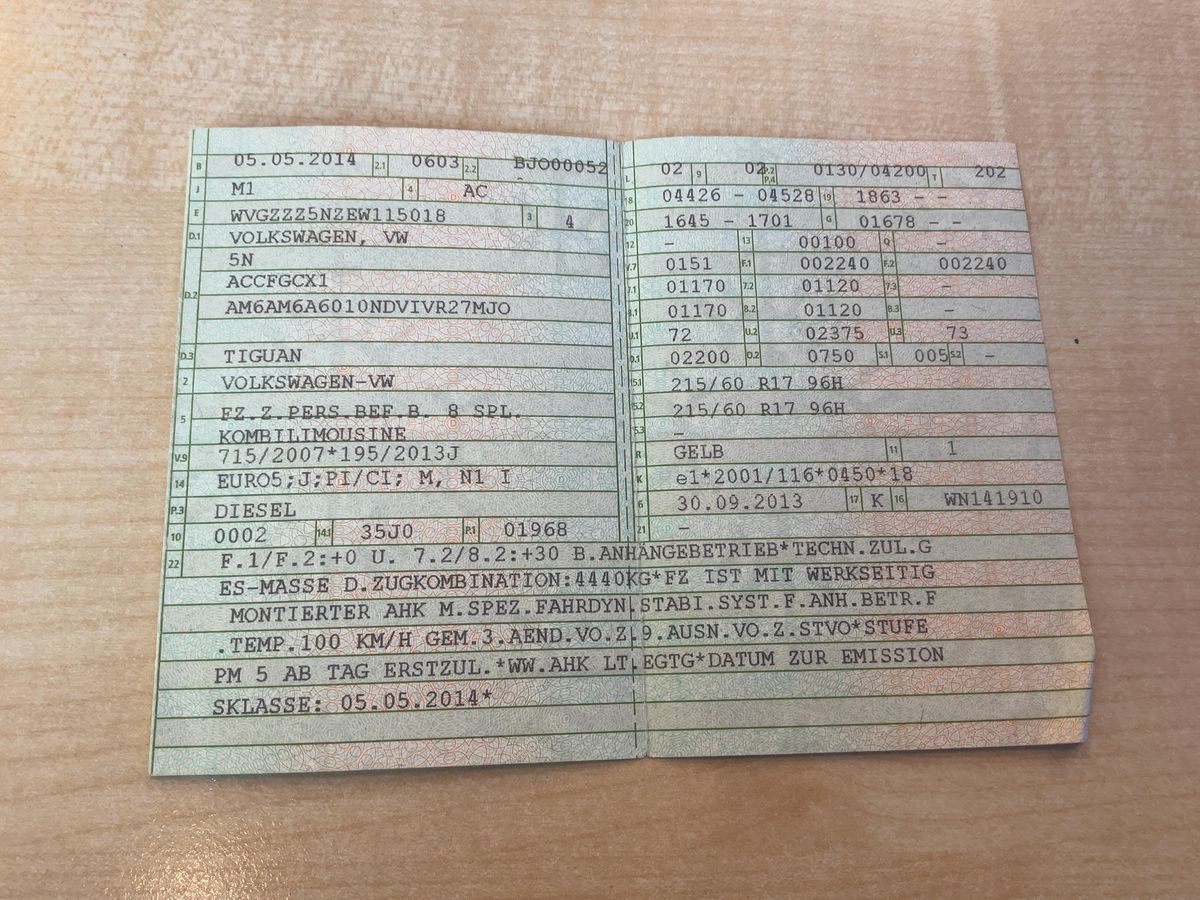 B 05.05.2014 2.1 0603 2.2 BJO00052
J M1 4 AC
E WVGZZZ5NZEW115018 3 4
D.1 VOLKSWAGEN, VW
5N
D.2 ACCFGCX1
AM6AM6A6010NDVIVR27MJO
D.3 TIGUAN
2 VOLKSWAGEN-VW
5 FZ.Z.PERS.BEF.B. 8 SPL.
KOMBILIMOUSINE
V.9 715/2007*195/2013J
14 EURO5;J;PI/CI; M, N1 I
P.3 DIESEL
10 0002 14.1 35J0 P.1 01968
L 02 9 02 P.2 P.4 0130/04200 T 202
18 04426 - 04528 19 1863 - -
20 1645 - 1701 G 01678 - -
12 - 13 00100 Q -
V.7 0151 F.1 002240 F.2 002240
7.1 01170 7.2 01120 7.3 -
8.1 01170 8.2 01120 8.3 -
U.1 72 U.2 02375 U.3 73
O.1 02200 O.2 0750 S.1 005 S.2 -
15.1 215/60 R17 96H
15.2 215/60 R17 96H
15.3 -
R GELB 11 1
K e1*2001/116*0450*18
6 30.09.2013 17 K 16 WN141910
21 -
22 F.1/F.2:+0 U. 7.2/8.2:+30 B.ANHÄNGEBETRIEB*TECHN.ZUL.G
ES-MASSE D.ZUGKOMBINATION:4440KG*FZ IST MIT WERKSEITIG
MONTIERTER AHK M.SPEZ.FAHRDYN.STABI.SYST.F.ANH.BETR.F
.TEMP.100 KM/H GEM.3.AEND.VO.Z.9.AUSN.VO.Z.STVO*STUFE
PM 5 AB TAG ERSTZUL.*WW.AHK LT.EGTG*DATUM ZUR EMISSION
SKLASSE: 05.05.2014*